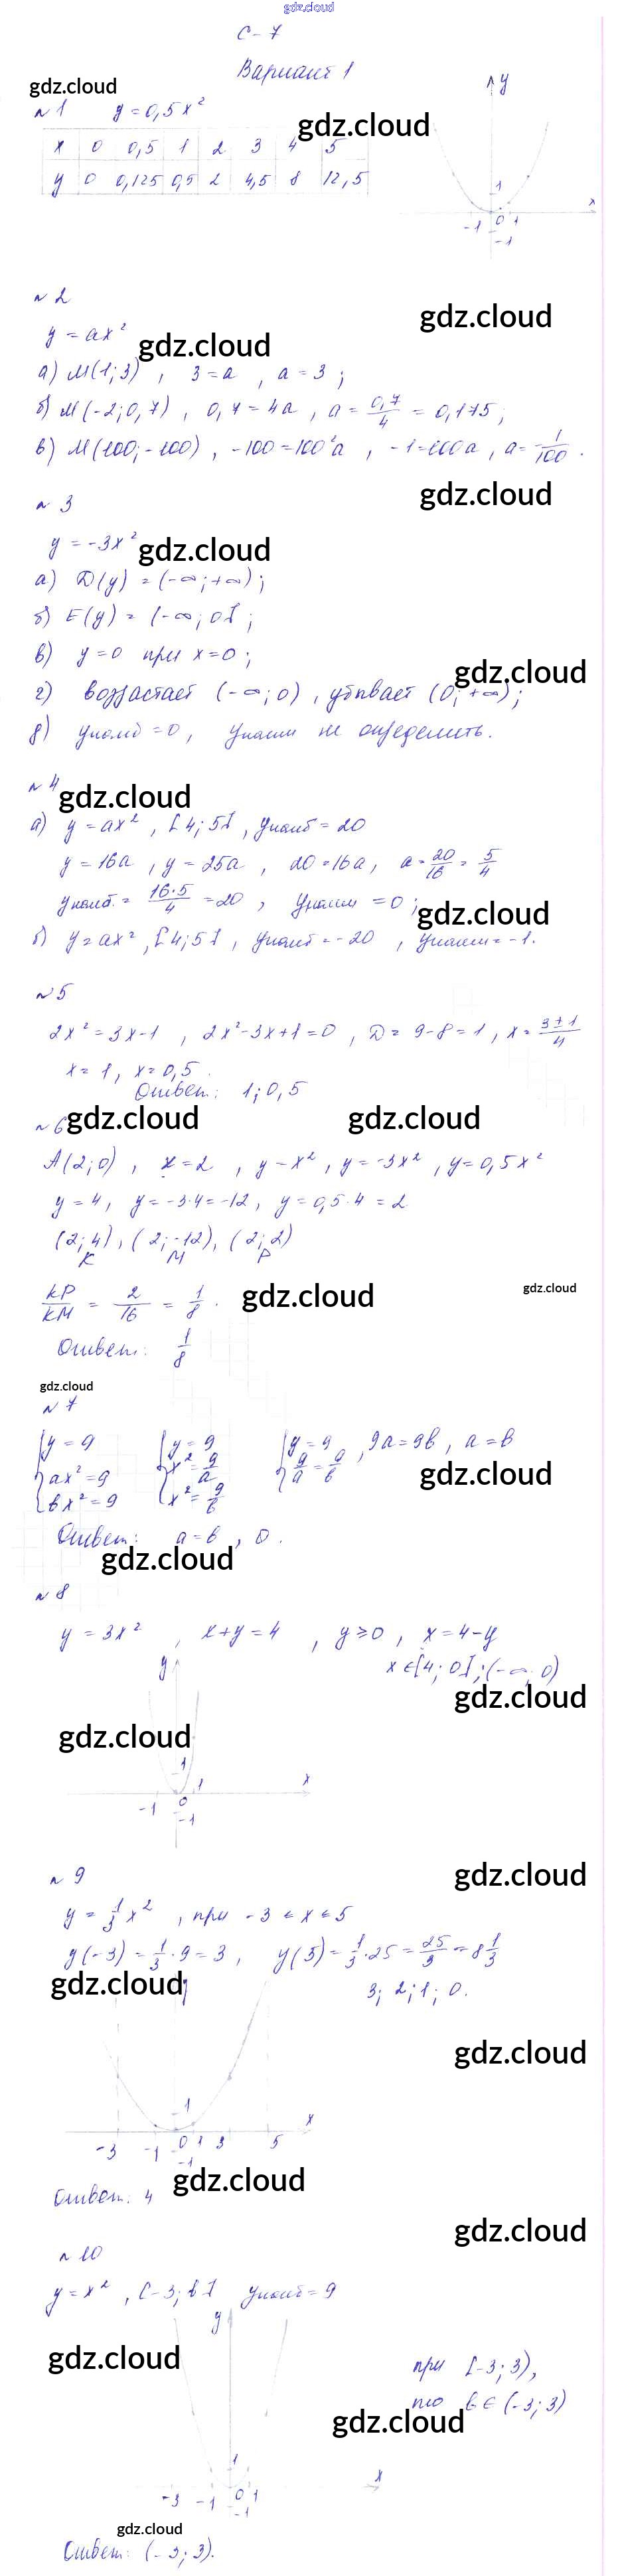 gdz.cloud
С-7
Вариант 1
gdz.cloud
№1 y=0,5x²
gdz.cloud
x 0 0,5 1 2 3 4 5
y 0 0,125 0,5 2 4,5 8 12,5
y
1
x
-1 0 1
-1
№2
gdz.cloud
y=ax²
gdz.cloud
а) M(1;3), 3=a, a=3;
б) M(-2;0,7), 0,7=4a, a=0,7/4=0,175;
в) M(100;-100), -100=100²a, -1=100a, a=1/100.
gdz.cloud
№3
y=-3x²
gdz.cloud
а) D(y)=(-∞;+∞);
б) E(y)=(-∞;0];
в) y=0 при x=0;
gdz.cloud
г) возрастает (-∞;0), убывает (0;+∞);
д) yнаиб=0, yнаим не определить.
№4
gdz.cloud
а) y=ax², [4;5], yнаиб=20
y=16a, y=25a, 20=16a, a=20/16=5/4
yнаиб.=16·5/4=20, yнаим=0;
gdz.cloud
б) y=ax², [4;5], yнаиб=-20, yнаим=-1.
№5
2x²=3x-1, 2x²-3x+1=0, D=9-8=1, x=3±1/4
x=1, x=0,5.
Ответ: 1;0,5
№6
gdz.cloud gdz.cloud
A(2;0), x=2, y=x², y=-3x², y=0,5x²
y=4, y=-3·4=-12, y=0,5·4=2
(2;4), (2;-12), (2;2)
K M P
KP/KM=2/16=1/8.
gdz.cloud
gdz.cloud
Ответ: 1/8
gdz.cloud
№7
{y=9 {y=9 {y=9, 9a=9b, a=b
ax²=9 x²=9/a 9/a=9/b
bx²=9 x²=9/b
gdz.cloud
Ответ: a=b, 0.
gdz.cloud
№8
y=3x², x+y=4, y≥0, x=4-y
x∈[4;0];(-∞;0)
gdz.cloud
y
gdz.cloud
1
x
-1 0 1
-1
№9
gdz.cloud
y=1/3x², при -3≤x≤5
y(-3)=1/3·9=3, y(5)=1/3·25=25/3=8 1/3
gdz.cloud
3; 2; 1; 0.
gdz.cloud
1
x
-3 -1 0 1 3 5
-1
gdz.cloud
Ответ: 4
gdz.cloud
№10
y=x², [-3;b] yнаиб=9
y
gdz.cloud
при [-3;3),
то b∈(-3;3)
gdz.cloud
1
x
-3 -1 0 1
-1
gdz.cloud
Ответ: (-3;3).